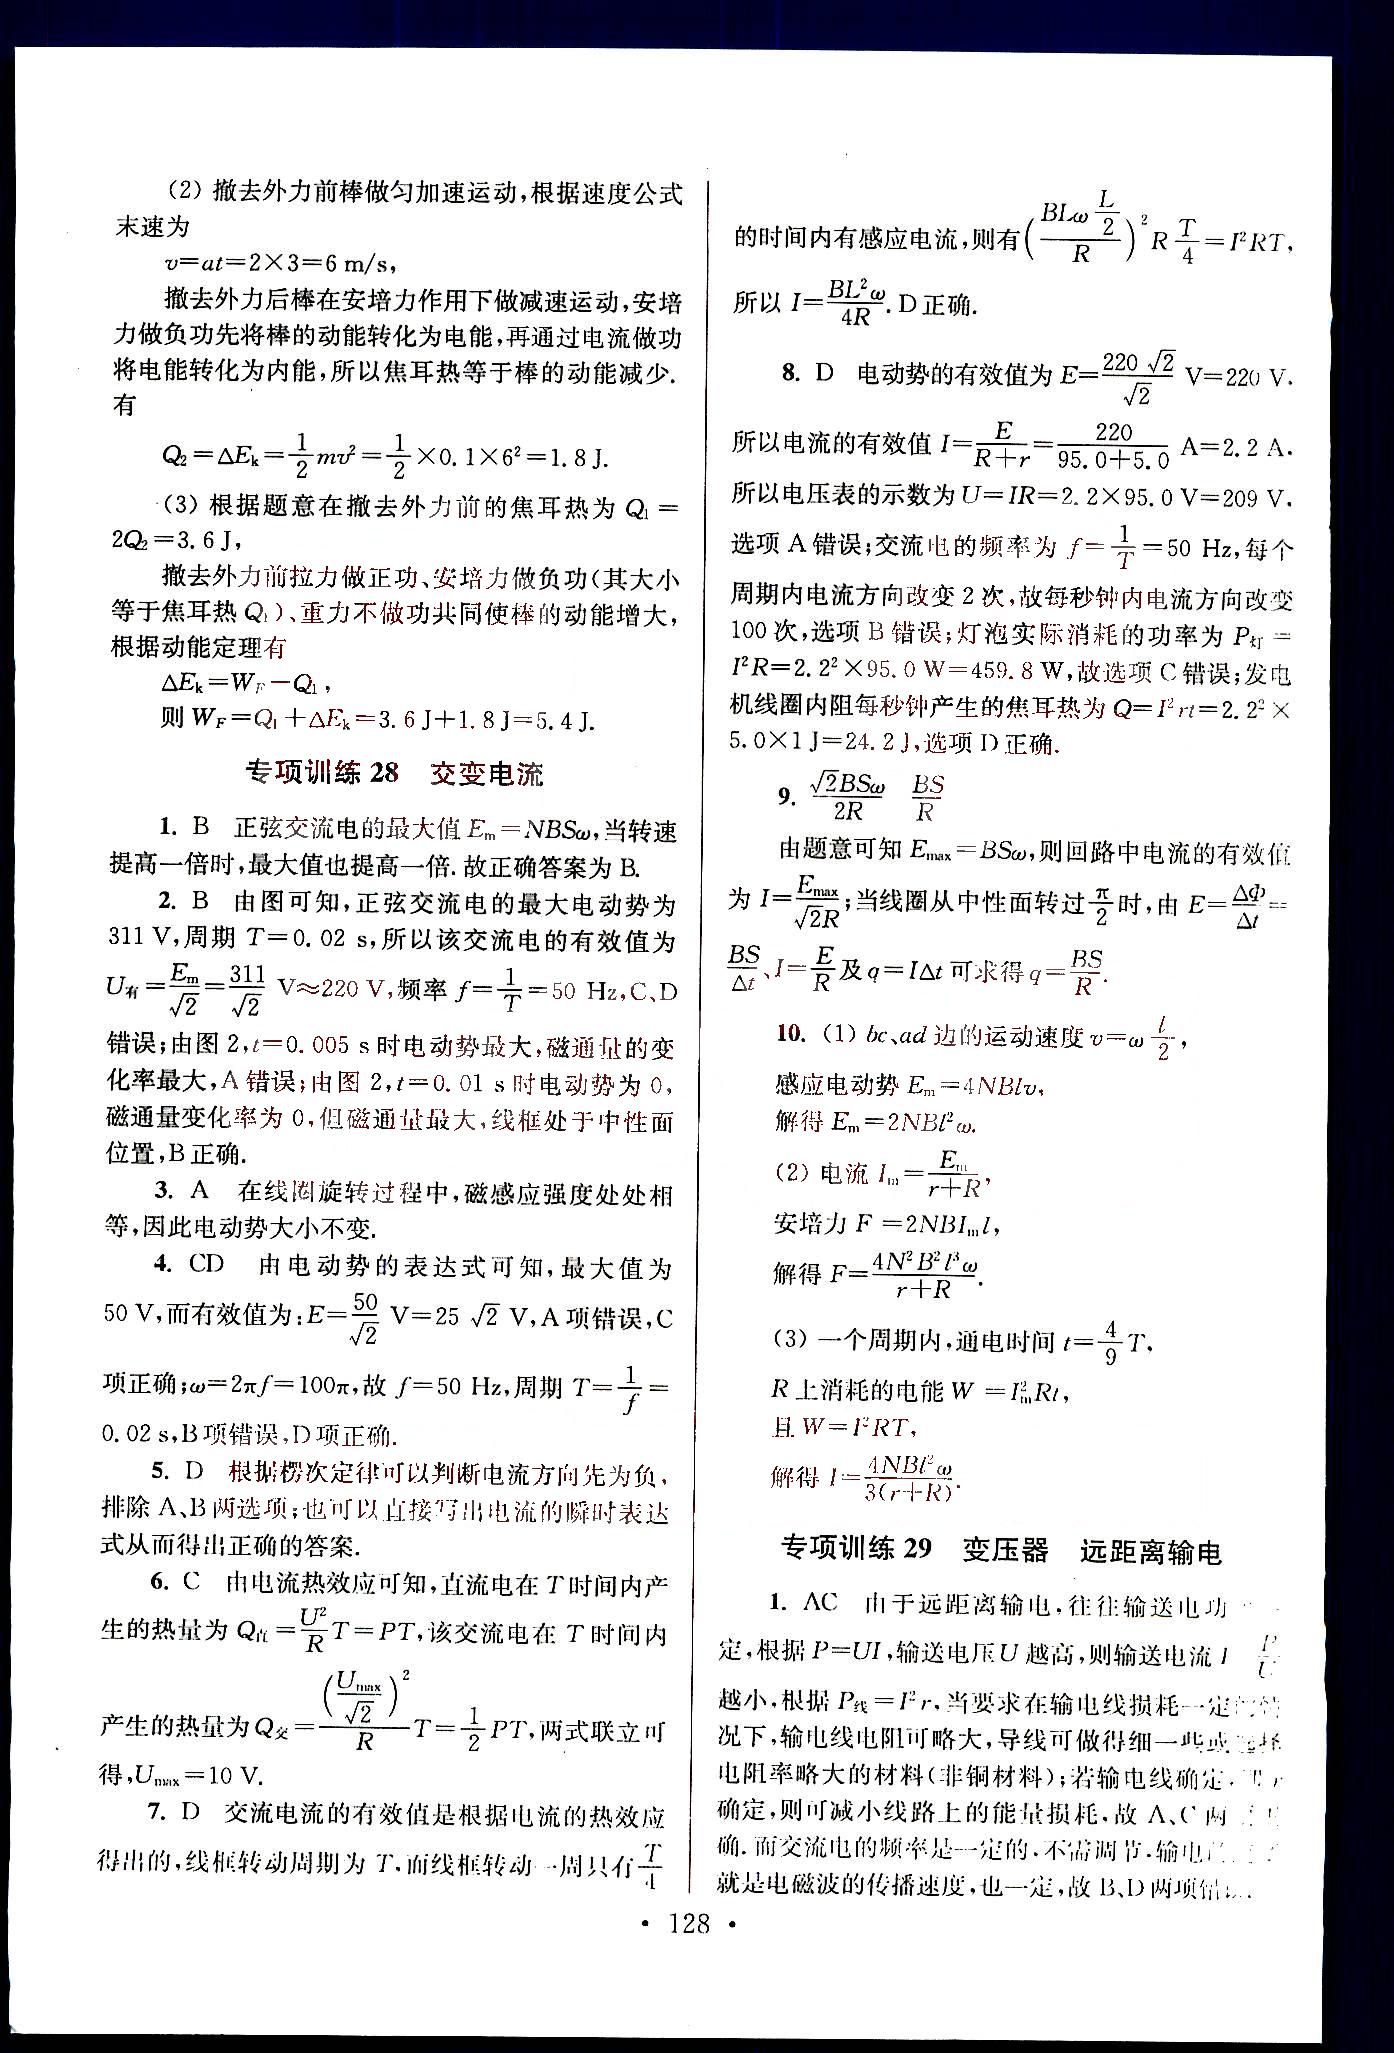 (2) 撤去外力前棒做匀加速运动,根据速度公式
末速为
v=at=2×3=6 m/s,
撤去外力后棒在安培力作用下做减速运动,安培
力做负功先将棒的动能转化为电能,再通过电流做功
将电能转化为内能,所以焦耳热等于棒的动能减少.
有
Q₂=ΔEₖ=1/2 mv²=1/2×0.1×6²=1.8 J.
(3) 根据题意在撤去外力前的焦耳热为 Q₁=
2Q₂=3.6 J,
撤去外力前拉力做正功、安培力做负功(其大小
等于焦耳热 Q₁)、重力不做功共同使棒的动能增大,
根据动能定理有
ΔEₖ=W_F-Q₁,
则 W_F=Q₁+ΔEₖ=3.6 J+1.8 J=5.4 J.
专项训练 28 交变电流
1. B 正弦交流电的最大值 Eₘ=NBSω,当转速
提高一倍时,最大值也提高一倍.故正确答案为 B.
2. B 由图可知,正弦交流电的最大电动势为
311 V,周期 T=0.02 s,所以该交流电的有效值为
U有=Eₘ/√2=311/√2 V≈220 V,频率 f=1/T=50 Hz,C、D
错误;由图 2,t=0.005 s 时电动势最大,磁通量的变
化率最大,A 错误;由图 2,t=0.01 s 时电动势为 0,
磁通量变化率为 0,但磁通量最大,线框处于中性面
位置,B 正确.
3. A 在线圈旋转过程中,磁感应强度处处相
等,因此电动势大小不变.
4. CD 由电动势的表达式可知,最大值为
50 V,而有效值为:E=50/√2 V=25√2 V,A 项错误,C
项正确;ω=2πf=100π,故 f=50 Hz,周期 T=1/f=
0.02 s,B 项错误,D 项正确.
5. D 根据楞次定律可以判断电流方向先为负,
排除 A、B 两选项;也可以直接写出电流的瞬时表达
式从而得出正确的答案.
6. C 由电流热效应可知,直流电在 T 时间内产
生的热量为 Q直=U²/R T=PT,该交流电在 T 时间内
产生的热量为 Q交=(Uₘₐₓ/√2)²/R T=1/2 PT,两式联立可
得,Uₘₐₓ=10 V.
7. D 交流电流的有效值是根据电流的热效应
得出的,线框转动周期为 T,而线框转动一周只有 T/4
的时间内有感应电流,则有(BLω L/2 / R)² R T/4=I²RT,
所以 I=BL²ω/4R.D 正确.
8. D 电动势的有效值为 E=220√2/√2 V=220 V,
所以电流的有效值 I=E/(R+r)=220/(95.0+5.0) A=2.2 A,
所以电压表的示数为 U=IR=2.2×95.0 V=209 V,
选项 A 错误;交流电的频率为 f=1/T=50 Hz,每个
周期内电流方向改变 2 次,故每秒钟内电流方向改变
100 次,选项 B 错误;灯泡实际消耗的功率为 P灯=
I²R=2.2²×95.0 W=459.8 W,故选项 C 错误;发电
机线圈内阻每秒钟产生的焦耳热为 Q=I²rt=2.2²×
5.0×1 J=24.2 J,选项 D 正确.
9. √2BSω/2R BS/R
由题意可知 Eₘₐₓ=BSω,则回路中电流的有效值
为 I=Eₘₐₓ/√2R;当线圈从中性面转过 π/2 时,由 E=ΔΦ/Δt=
BS/Δt、I=E/R 及 q=IΔt 可求得 q=BS/R.
10. (1) bc、ad 边的运动速度 v=ω l/2,
感应电动势 Eₘ=4NBlv,
解得 Eₘ=2NBl²ω.
(2) 电流 Iₘ=Eₘ/(r+R),
安培力 F=2NBIₘl,
解得 F=4N²B²l³ω/(r+R).
(3) 一个周期内,通电时间 t=4/9 T,
R 上消耗的电能 W=Iₘ²Rt,
且 W=I²RT,
解得 I=4NBl²ω/3(r+R).
专项训练 29 变压器 远距离输电
1. AC 由于远距离输电,往往输送电功
定,根据 P=UI,输送电压 U 越高,则输送电流 I P/U
越小,根据 P线=I²r,当要求在输电线损耗一定
况下,输电线电阻可略大,导线可做得细一些或选择
电阻率略大的材料(非铜材料);若输电线确定,
确定,则可减小线路上的能量损耗,故 A、C 两
确.而交流电的频率是一定的,不需调节,输电
就是电磁波的传播速度,也一定,故 B、D 两项错
• 128 •